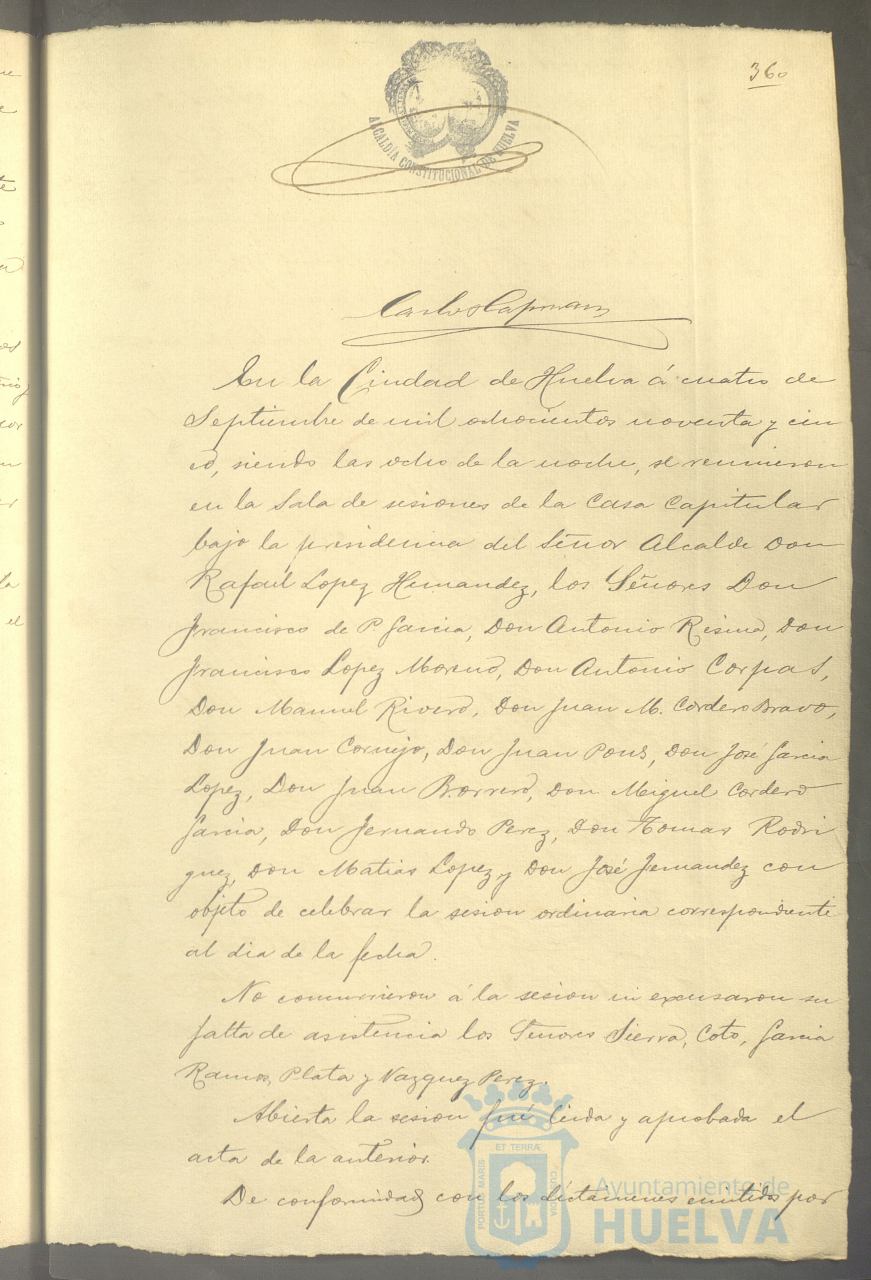 360
ALCALDÍA CONSTITUCIONAL DE HUELVA
Carlos Capman
En la Ciudad de Huelva á cuatro de
Septiembre de mil ochocientos noventa y cin
co, siendo las ocho de la noche, se reunieron
en la Sala de sesiones de la Casa Capitular
bajo la presidencia del Señor Alcalde Don
Rafael Lopez Hernandez, los Señores Don
Francisco de P Garcia, Don Antonio Resma, Don
Francisco Lopez Moreno, Don Antonio Corpas,
Don Manuel Rivero, Don Juan M. Cordero Bravo,
Don Juan Cornejo, Don Juan Pons, Don José Garcia
Lopez, Don Juan Borrero, Don Miguel Cordero
Garcia, Don Fernando Perez, Don Tomas Rodri
guez, Don Matias Lopez y Don José Fernandez con
objeto de celebrar la sesion ordinaria correspondiente
al dia de la fecha.
No concurrieron á la sesion ni excusaron su
falta de asistencia los Señores Sierra, Coto, Garcia
Ramos, Plata y Vazquez Perez.
Abierta la sesion fué leida y aprobada el
acta de la anterior.
De conformidad con los dictámenes emitidos por
PORTUS MARIS ET TERRÆ CUSTODIA
Ayuntamiento de
HUELVA